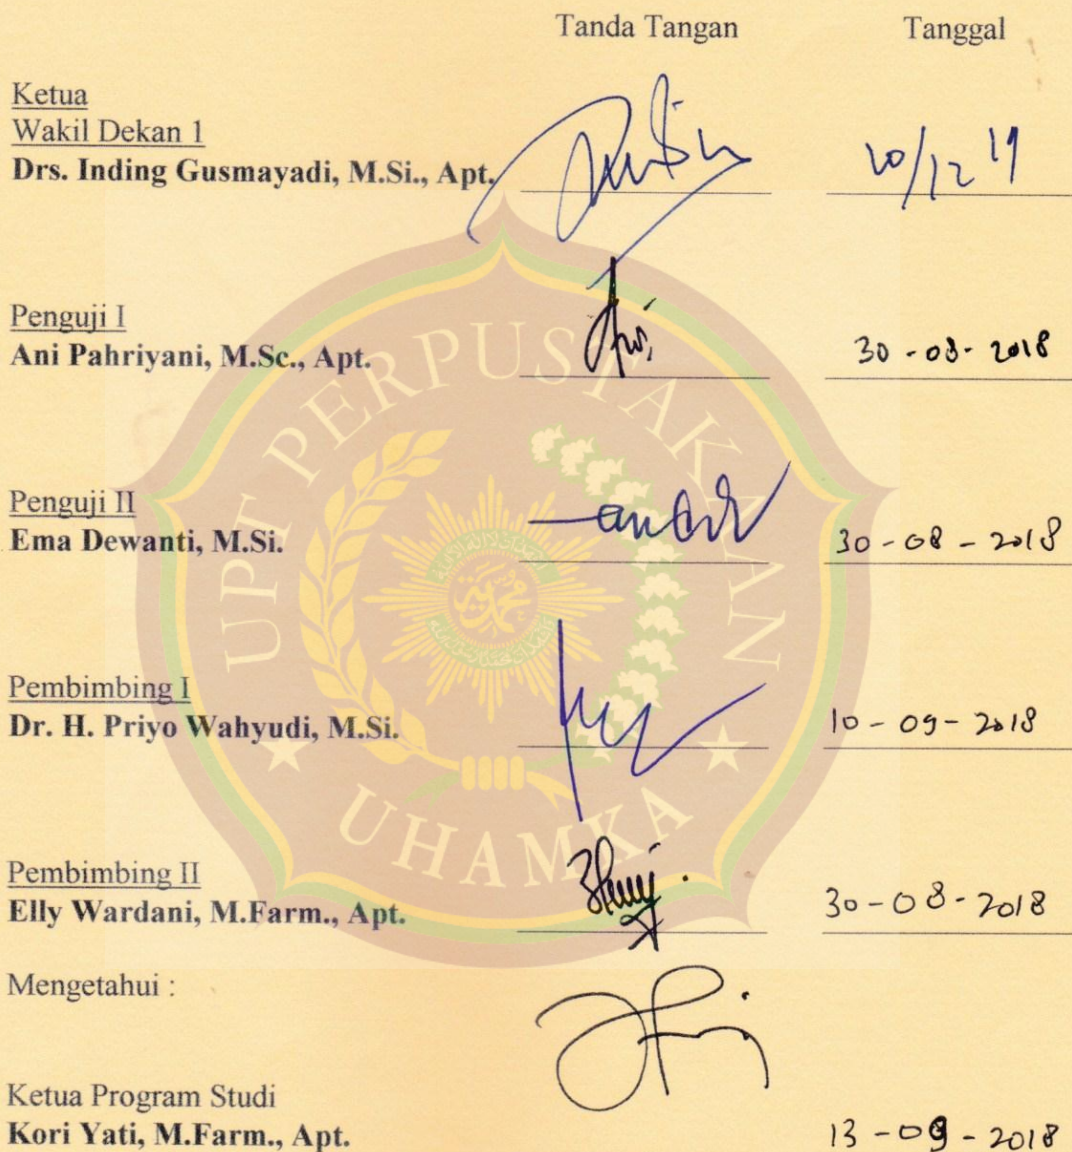 Tanda Tangan Tanggal
Ketua
Wakil Dekan 1
Drs. Inding Gusmayadi, M.Si., Apt.
Penguji I
Ani Pahriyani, M.Sc., Apt. 30-08-2018
Penguji II
Ema Dewanti, M.Si. 30-08-2018
Pembimbing I
Dr. H. Priyo Wahyudi, M.Si. 10-09-2018
Pembimbing II
Elly Wardani, M.Farm., Apt. 30-08-2018
Mengetahui :
Ketua Program Studi
Kori Yati, M.Farm., Apt. 13-09-2018
UPT PERPUSTAKAAN
UHAMKA